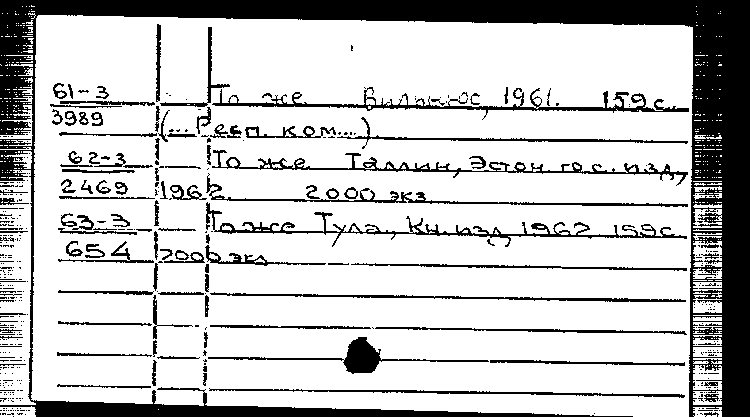 61-3 То же Вильнюс, 1961. 159 с.
3989 (... Респ. ком...).
62-3 То же Таллин, Эстон. гос. изд,
2469 1962. 2000 экз
63-3 То же Тула, Кн. изд, 1962 159с
654 2000 экз